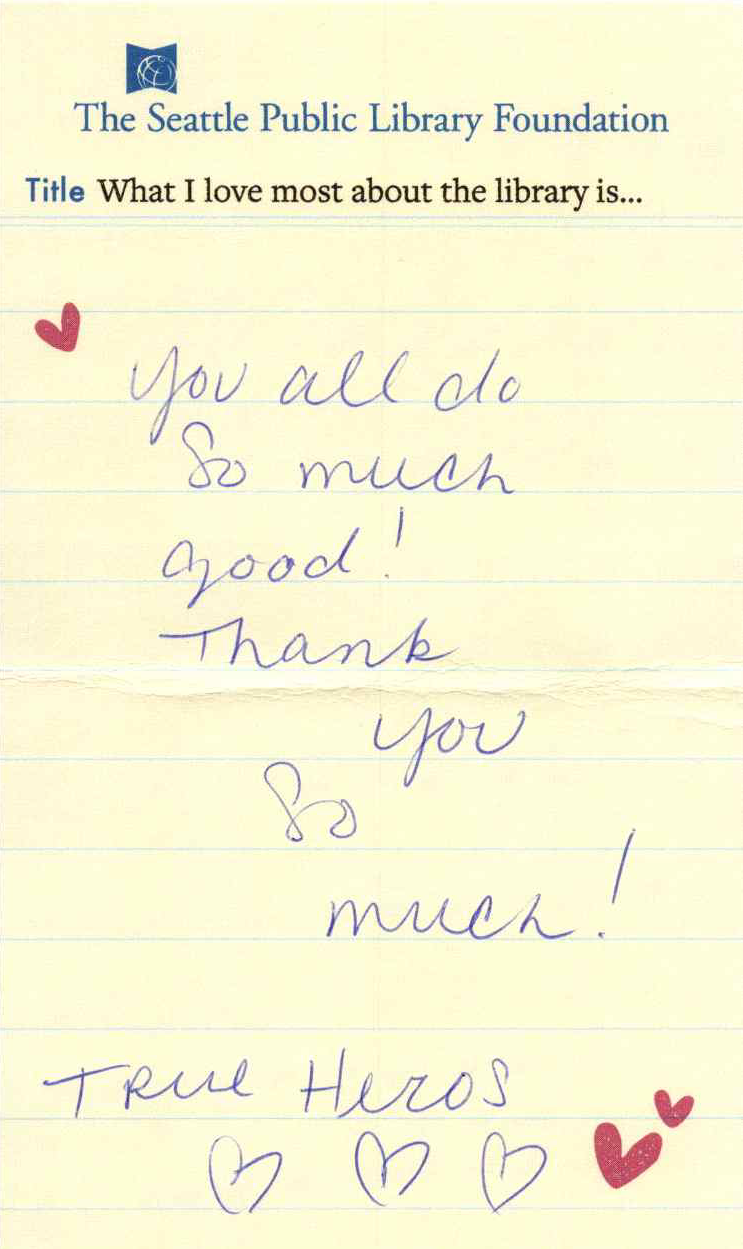 The Seattle Public Library Foundation
Title What I love most about the library is...
You all do
So much
good!
Thank
you
So
much!
True Heros